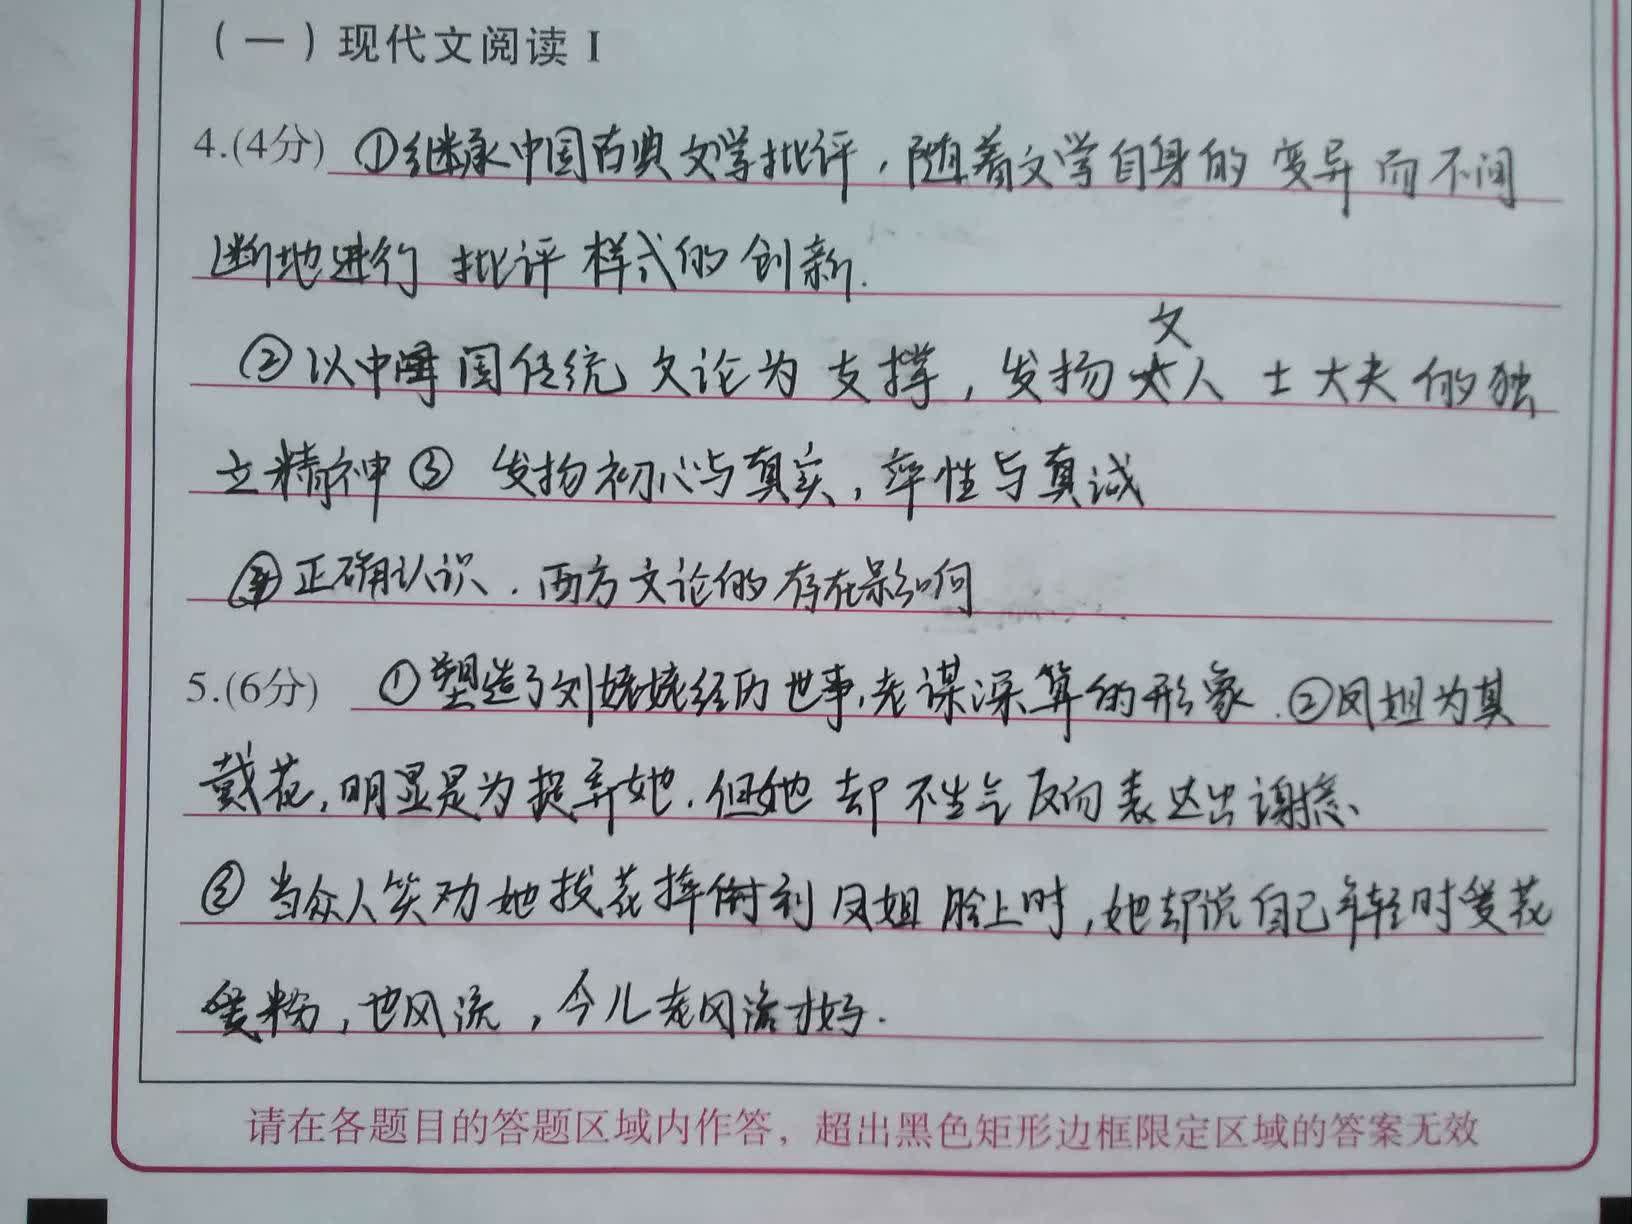 （一）现代文阅读 I
4.(4分) ①继承中国古典文学批评，随着文学自身的变异而不间
断地进行批评样式的创新.
文
②以中国传统文论为支撑，发扬人士大夫的独
立精神③发扬初心与真实，率性与真诚
④正确认识.西方文论的存在影响
5.(6分) ①塑造了刘姥姥经历世事,老谋深算的形象.②凤姐为其
戴花,明显是为捉弄她.但她却不生气反而表达出谢意、
③当众人笑劝她拔花摔倒到凤姐脸上时,她却说自己年轻时爱花
爱粉,也风流,今儿老风流才好.
请在各题目的答题区域内作答，超出黑色矩形边框限定区域的答案无效